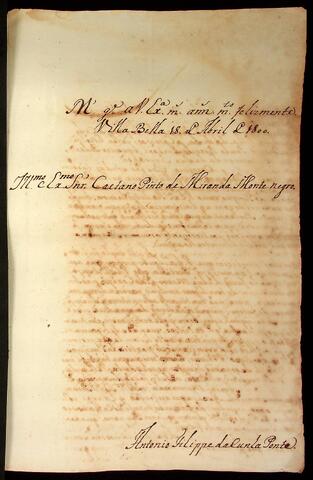 M.s g.e a V. Ex.ª m. ann. m.tos felizmente.
Villa Bella 18. de Abril de 1800.
Ill.mo e Ex.mo Snr. Caetano Pinto de Miranda Monte negro.
Antonio Filippe da Cunha Ponte.